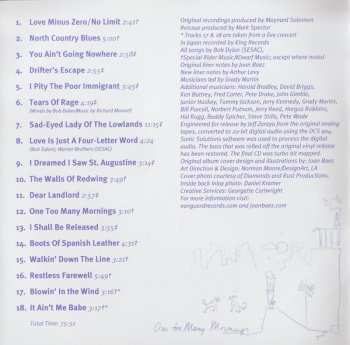 1. Love Minus Zero/No Limit 2:41†
2. North Country Blues 5:00†
3. You Ain't Going Nowhere 2:58‡
4. Drifter's Escape 2:55‡
5. I Pity The Poor Immigrant 3:45‡
6. Tears Of Rage 4:19‡
(Words by Bob Dylan/Music by Richard Manuel)
7. Sad-Eyed Lady Of The Lowlands 11:15‡
8. Love Is Just A Four-Letter Word 4:24
(Bob Dylan), Warner Brothers (SESAC)
9. I Dreamed I Saw St. Augustine 3:14‡
10. The Walls Of Redwing 4:49†
11. Dear Landlord 2:57‡
12. One Too Many Mornings 3:10†
13. I Shall Be Released 3:55‡
14. Boots Of Spanish Leather 4:31†
15. Walkin' Down The Line 3:21†
16. Restless Farewell 5:49†
17. Blowin' In the Wind 3:16†*
18. It Ain't Me Babe 3:17†*
Total Time: 75:32
Original recordings produced by Maynard Solomon
Reissue produced by Mark Spector
* Tracks 17 & 18 are taken from a live concert
in Japan recorded by King Records
All songs by Bob Dylan (SESAC),
†Special Rider Music/‡Dwarf Music, except where noted.
Original liner notes by Joan Baez
New liner notes by Arthur Levy
Musicians led by Grady Martin
Additional musicians: Harold Bradley, David Briggs,
Ken Buttrey, Fred Carter, Pete Drake, John Gimble,
Junior Huskey, Tommy Jackson, Jerry Kennedy, Grady Martin,
Bill Purcell, Norbert Putnam, Jerry Reed, Hargus Robbins,
Hal Rugg, Buddy Spicher, Steve Stills, Pete Wade
Engineered for release by Jeff Zaraya from the original analog
tapes, converted to 20 bit digital audio using the DCS 904.
Sonic Solutions software was used to process the digital
audio. The bass that was rolled off the original vinyl release
has been restored. The final CD was turbo bit mapped.
Original album cover design and illustrations by: Joan Baez
Art Direction & Design: Norman Moore/DesignArt, LA
Cover photo courtesy of Diamonds and Rust Productions.
Inside back inlay photo: Daniel Kramer
Creative Services: Georgette Cartwright
For more information visit:
vanguardrecords.com and joanbaez.com
One too Many Mornings